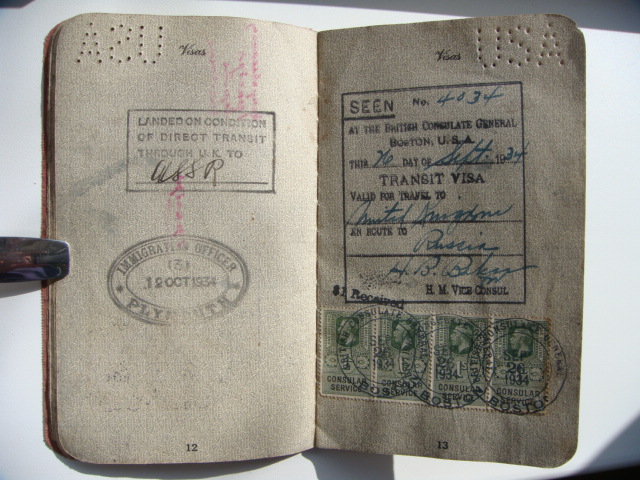 USA
Visas
LANDED ON CONDITION
OF DIRECT TRANSIT
THROUGH U.K. TO
USSR
IMMIGRATION OFFICER
(3)
12 OCT 1934
PLYMOUTH
12
Visas
USA
SEEN No. 4034
AT THE BRITISH CONSULATE GENERAL
BOSTON, U.S.A.
THIS 26 DAY OF Sept. 1934
TRANSIT VISA
VALID FOR TRAVEL TO
United Kingdom
EN ROUTE TO
Russia
H. M. VICE CONSUL
$1 Received
BRITISH CONSULATE GENERAL
SEP
26
1934
BOSTON
CONSULAR SERVICE
CONSULAR SERVICE
CONSULAR SERVICE
CONSULAR SERVICE
13